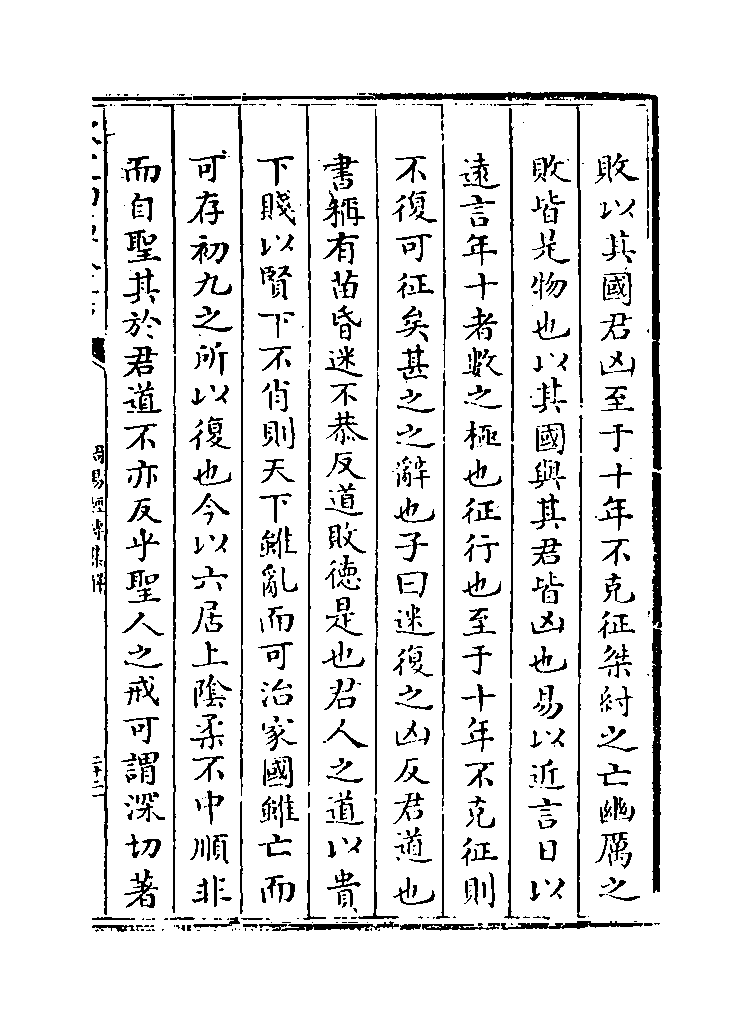 敗以其國君凶至于十年不克征桀紂之亡幽厲之
敗皆是物也以其國與其君皆凶也易以近言日以
遠言年十者數之極也征行也至于十年不克征則
不復可征矣甚之之辭也子曰迷復之凶反君道也
書稱有苗昏迷不恭反道敗德是也君人之道以貴
下賤以賢下不肖則天下雖亂而可治家國雖亡而
可存初九之所以復也今以六居上陰柔不中順非
而自聖其於君道不亦反乎聖人之戒可謂深切著
周易經傳集解